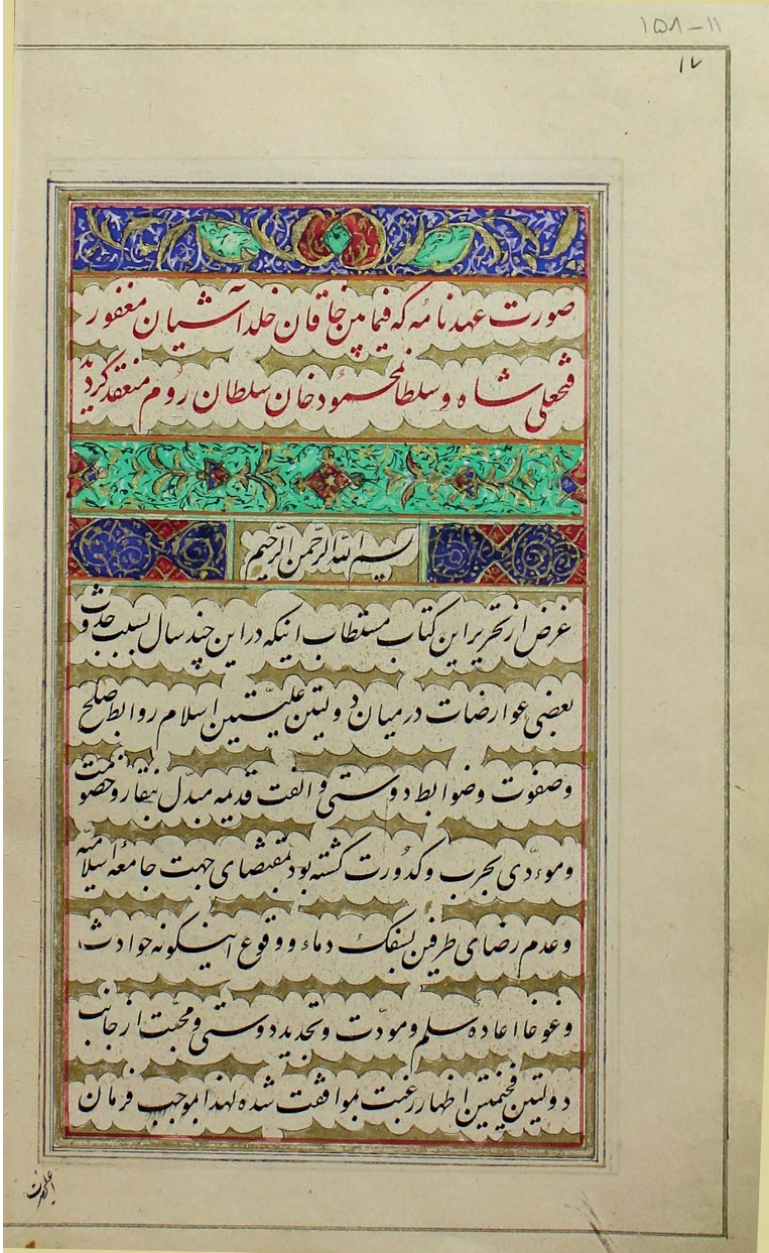 ۱۵۸-۱۱
۱۷
صورت عهدنامه که فیمابین خاقان خلد آشیان مغفور
فتحعلی شاه و سلطان محمود خان سلطان روم منعقد گردید
بسم الله الرحمن الرحیم
غرض از تحریر این کتاب مستطاب اینکه در این چند سال بسبب حدوث
بعضی عوارضات در میان دولتین علیتین اسلام روابط صلح
و صفوت و ضوابط دوستی و الفت قدیمه مبدّل بنقار و خصومت
و موءدّی بحرب و کدورت گشته بود بمقتضای جهت جامعه اسلامیّه
و عدم رضای طرفین بسفک دماء و وقوع اینگونه حوادث
و غوغا اعاده سلم و مودّت و تجدید دوستی و محبّت از جانب
دولتین فخیمتین اظهار رغبت بموافقت شده لهذا بموجب فرمان